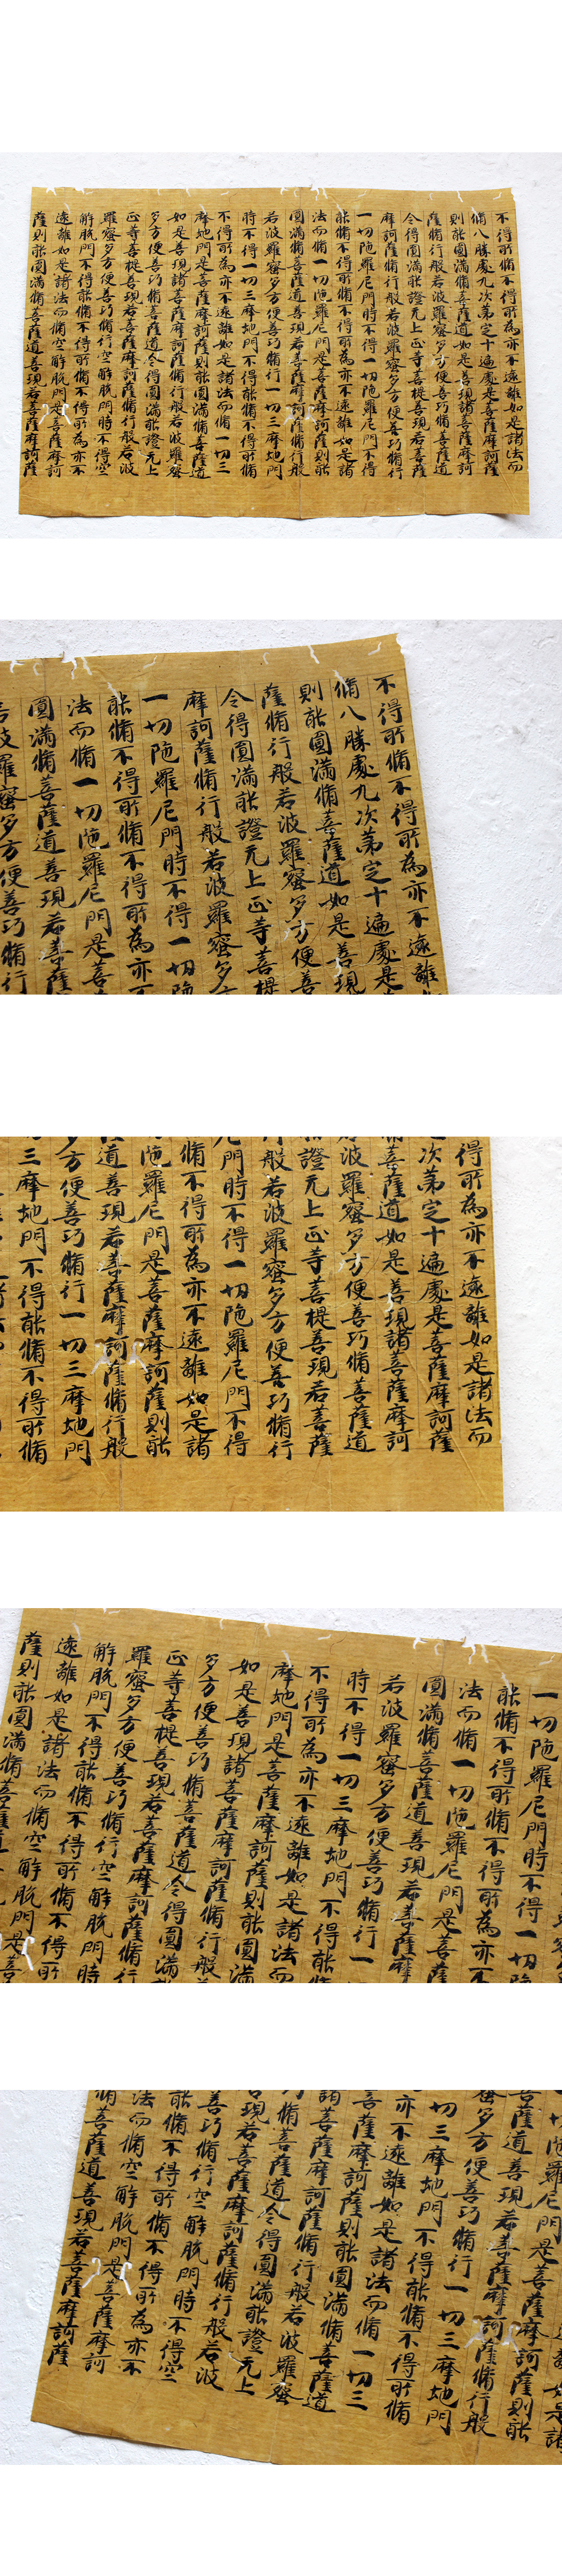 不得所脩不得所為亦不遠離如是諸法而
脩八勝處九次第定十遍處是菩薩摩訶薩
則能圓滿脩菩薩道如是善現諸菩薩摩訶
薩脩行般若波羅蜜多方便善巧脩菩薩道
令得圓滿能證无上正等菩提善現若菩薩
摩訶薩脩行般若波羅蜜多方便善巧脩行
一切陁羅尼門時不得一切陁羅尼門不得
能脩不得所脩不得所為亦不遠離如是諸
法而脩一切陁羅尼門是菩薩摩訶薩則能
圓滿脩菩薩道善現若菩薩摩訶薩脩行般
若波羅蜜多方便善巧脩行一切三摩地門
時不得一切三摩地門不得能脩不得所脩
不得所為亦不遠離如是諸法而脩一切三
摩地門是菩薩摩訶薩則能圓滿脩菩薩道
如是善現諸菩薩摩訶薩脩行般若波羅蜜
多方便善巧脩菩薩道令得圓滿能證无上
正等菩提善現若菩薩摩訶薩脩行般若波
羅蜜多方便善巧脩行空解脫門時不得空
解脫門不得能脩不得所脩不得所為亦不
遠離如是諸法而脩空解脫門是菩薩摩訶
薩則能圓滿脩菩薩道善現若菩薩摩訶薩